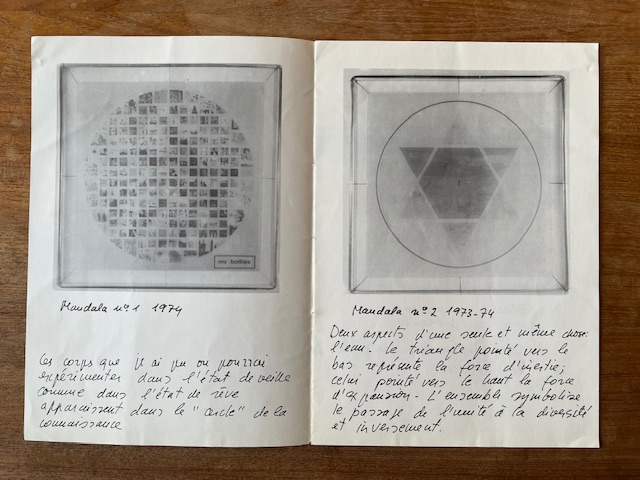 my bodies
Mandala nº1 1974
Les corps que j'ai pu ou pourrai
expérimenter dans l'état de veille
comme dans l'état de rêve
apparaissent dans le "cercle" de la
connaissance
Mandala nº2 1973-74
Deux aspects d'une seule et même chose:
l'eau. Le triangle pointé vers le
bas représente la force d'inertie;
celui pointé vers le haut la force
d'expansion. L'ensemble symbolise
le passage de l'unité à la diversité
et inversement.